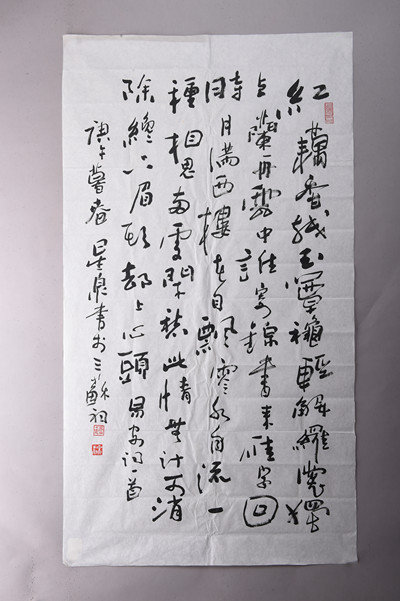 紅藕香殘玉簟秋輕解羅裳獨
上蘭舟雲中誰寄錦書來雁字回
時月滿西樓花自飄零水自流一
種相思兩處閑愁此情無計可消
除纔下眉頭卻上心頭易安詞一首
庚午暮春泉書於三蘇祠